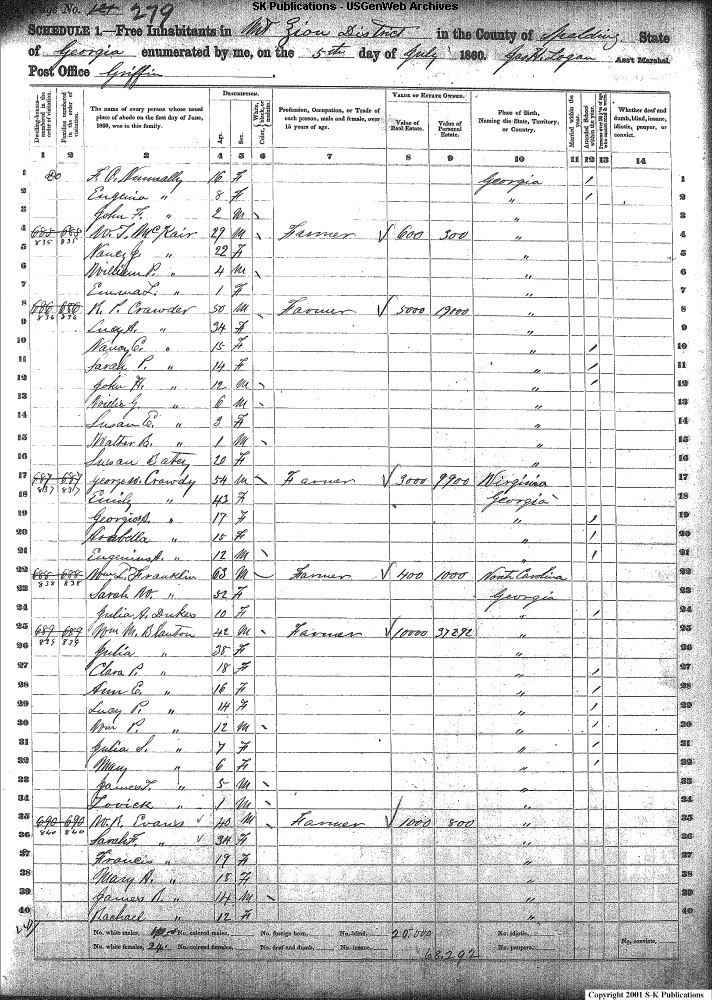 SK Publications - USGenWeb Archives
Page No. 279
SCHEDULE 1.—Free Inhabitants in Mt Zion District in the County of Spalding State
of Georgia enumerated by me, on the 5th day of July 1860. Jas. H. Logan Ass't Marshal.
Post Office Griffin
Dwelling-houses numbered in the order of visitation.
Families numbered in the order of visitation.
The name of every person whose usual place of abode on the first day of June, 1860, was in this family.
DESCRIPTION.
Age.
Sex.
Color, White, black, or mulatto.
Profession, Occupation, or Trade of each person, male and female, over 15 years of age.
VALUE OF ESTATE OWNED.
Value of Real Estate.
Value of Personal Estate.
Place of Birth, Naming the State, Territory, or Country.
Married within the year.
Attended School within the year.
Whether deaf and dumb, blind, insane, idiotic, pauper, or convict.
1 2 3 4 5 6 7 8 9 10 11 12 13 14
1 Nunnally 16 F Georgia / 1
2 Eugenia " 8 F " / 2
3 John F. " 2 M " 3
4 685 685 835 835 Wm. T. McKair 29 M Farmer 600 300 " 4
5 Nancy J. " 22 F " 5
6 William P. " 4 M " 6
7 Emma L. " 1 F " 7
8 686 686 836 836 R. P. Crawder 50 M Farmer 5000 19000 " 8
9 Lucy A. " 34 F " 9
10 Nancy C. " 15 F " / 10
11 Sarah P. " 14 F " / 11
12 John H. " 12 M " / 12
13 Willie G " 6 M " 13
14 Susan E. " 3 F " 14
15 Walter B. " 1 M " 15
16 Susan Bates 20 F " 16
17 687 687 837 837 George W. Crawdy 54 M Farmer 3000 9900 Virginia 17
18 Emily " 43 F Georgia 18
19 Georgia A. " 17 F " / 19
20 Arabella " 15 F " / 20
21 " 12 M " / 21
22 688 688 838 838 Wm. L. Franklin 63 M Farmer 400 1000 North Carolina 22
23 Sarah W. " 52 F Georgia 23
24 Julia A. Dukes 10 F " / 24
25 689 689 839 839 Wm M. Blanton 42 M Farmer 10000 37292 " 25
26 Julia " 38 F " 26
27 Clara P. " 18 F " / 27
28 Ann E. " 16 F " / 28
29 Lucy P. " 14 F " / 29
30 Wm P. " 12 M " / 30
31 Julia S. " 7 F " / 31
32 Mary " 6 F " / 32
33 James T. " 5 M " 33
34 Lovick " 1 M " 34
35 690 690 840 840 W. R. Evans 40 M Farmer 1000 800 " 35
36 Sarah F. " 34 F " 36
37 Francis " 19 F " 37
38 Mary A. " 15 F " 38
39 James R. " 14 M " 39
40 Rachael " 12 F " 40
No. white males, No. colored males, No. foreign born, No. blind, 20.000 No. idiotic,
No. white females, 24 No. colored females, No. deaf and dumb, No. insane, 68.292 No. paupers, No. convicts,
Copyright 2001 S-K Publications